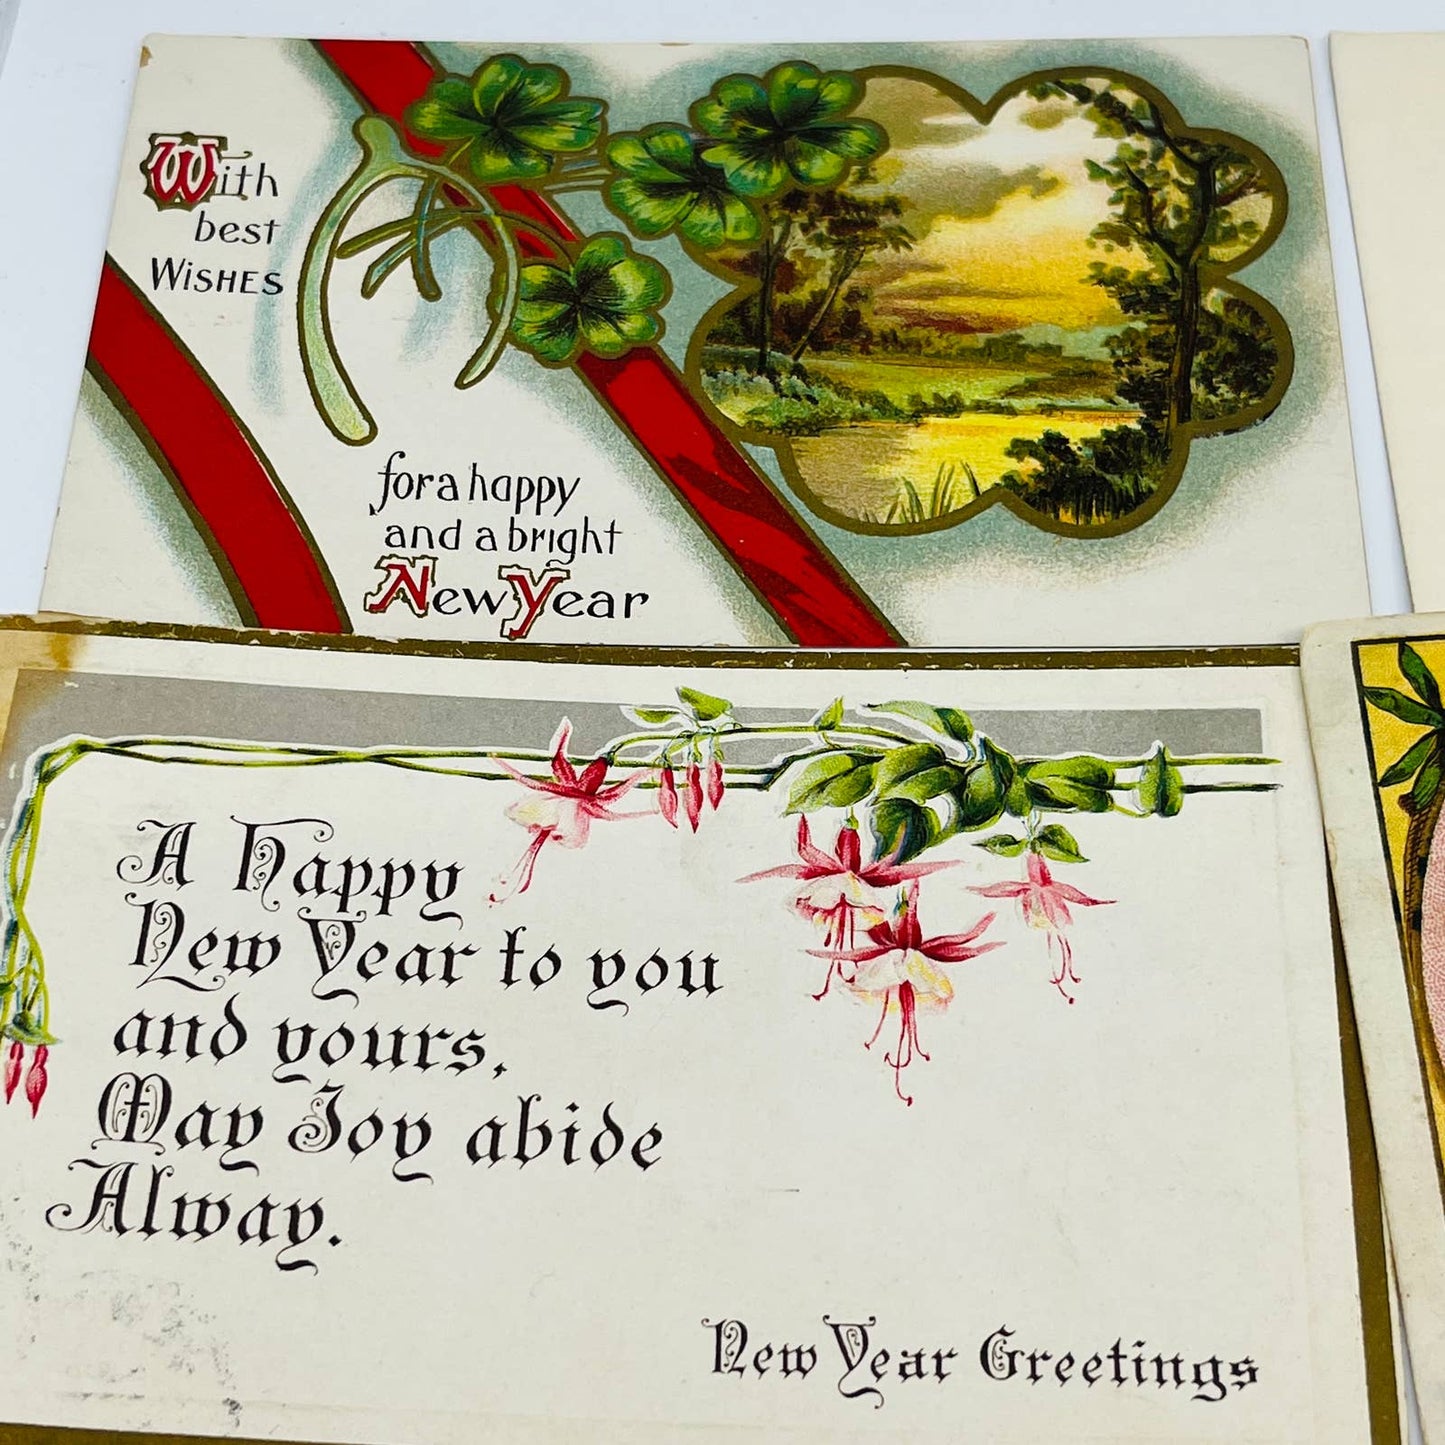 With
best
Wishes
for a happy
and a bright
New Year
A Happy
New Year to you
and yours,
May Joy abide
Alway.
New Year Greetings